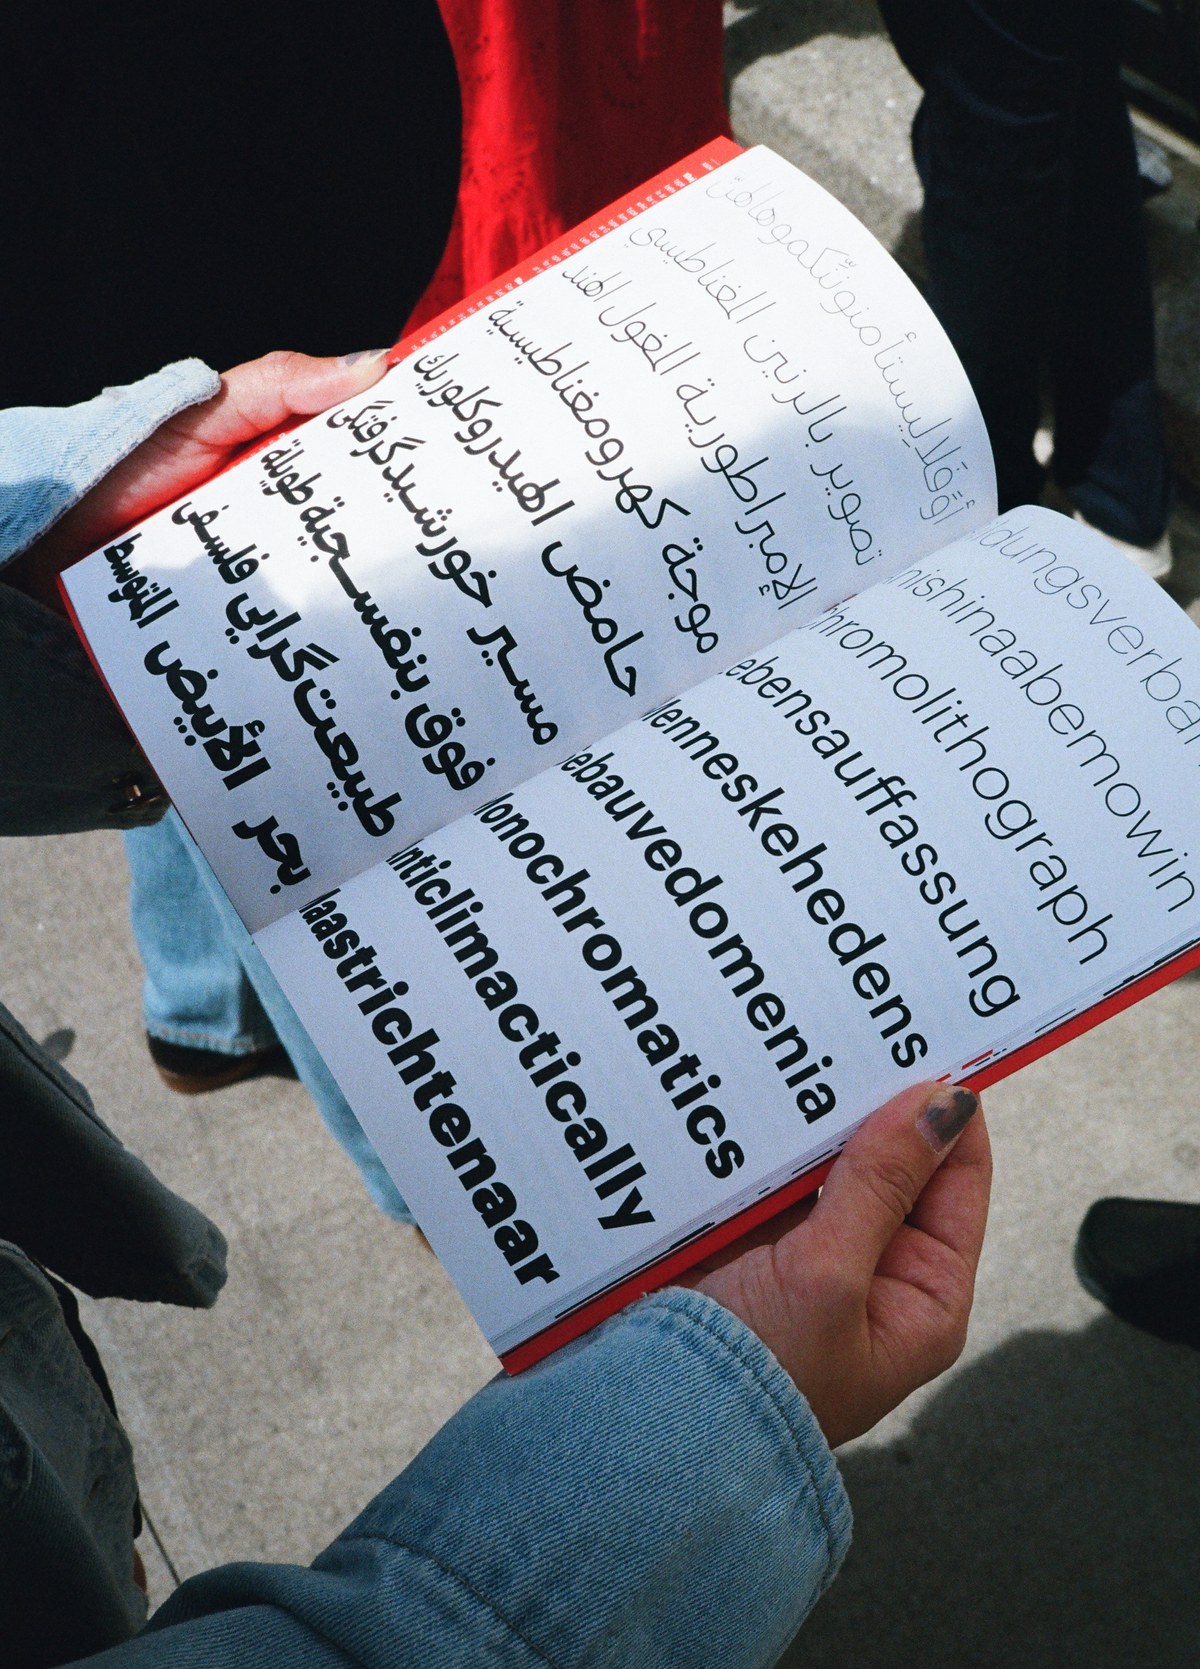 تصوير بالرنين المغناطيسي
الإمبراطورية المغول الهند
موجة كهرومغناطيسية
حامض الهيدروكلوريك
مسیر خورشیدگرفتگی
فوق بنفسجية طويلة
طبیعت‌گرایی فلسفی
بحر الأبيض المتوسط
ildungsverban
nishinaabemowin
hromolithograph
ebensauffassung
enneskehedens
ebauvedomenia
onochromatics
nticlimactically
aastrichtenaar